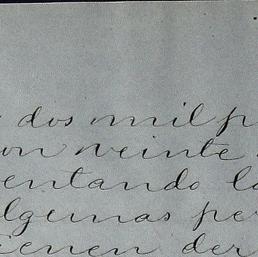 dos mil p
on veinte
entando la
algemas per
ienen der